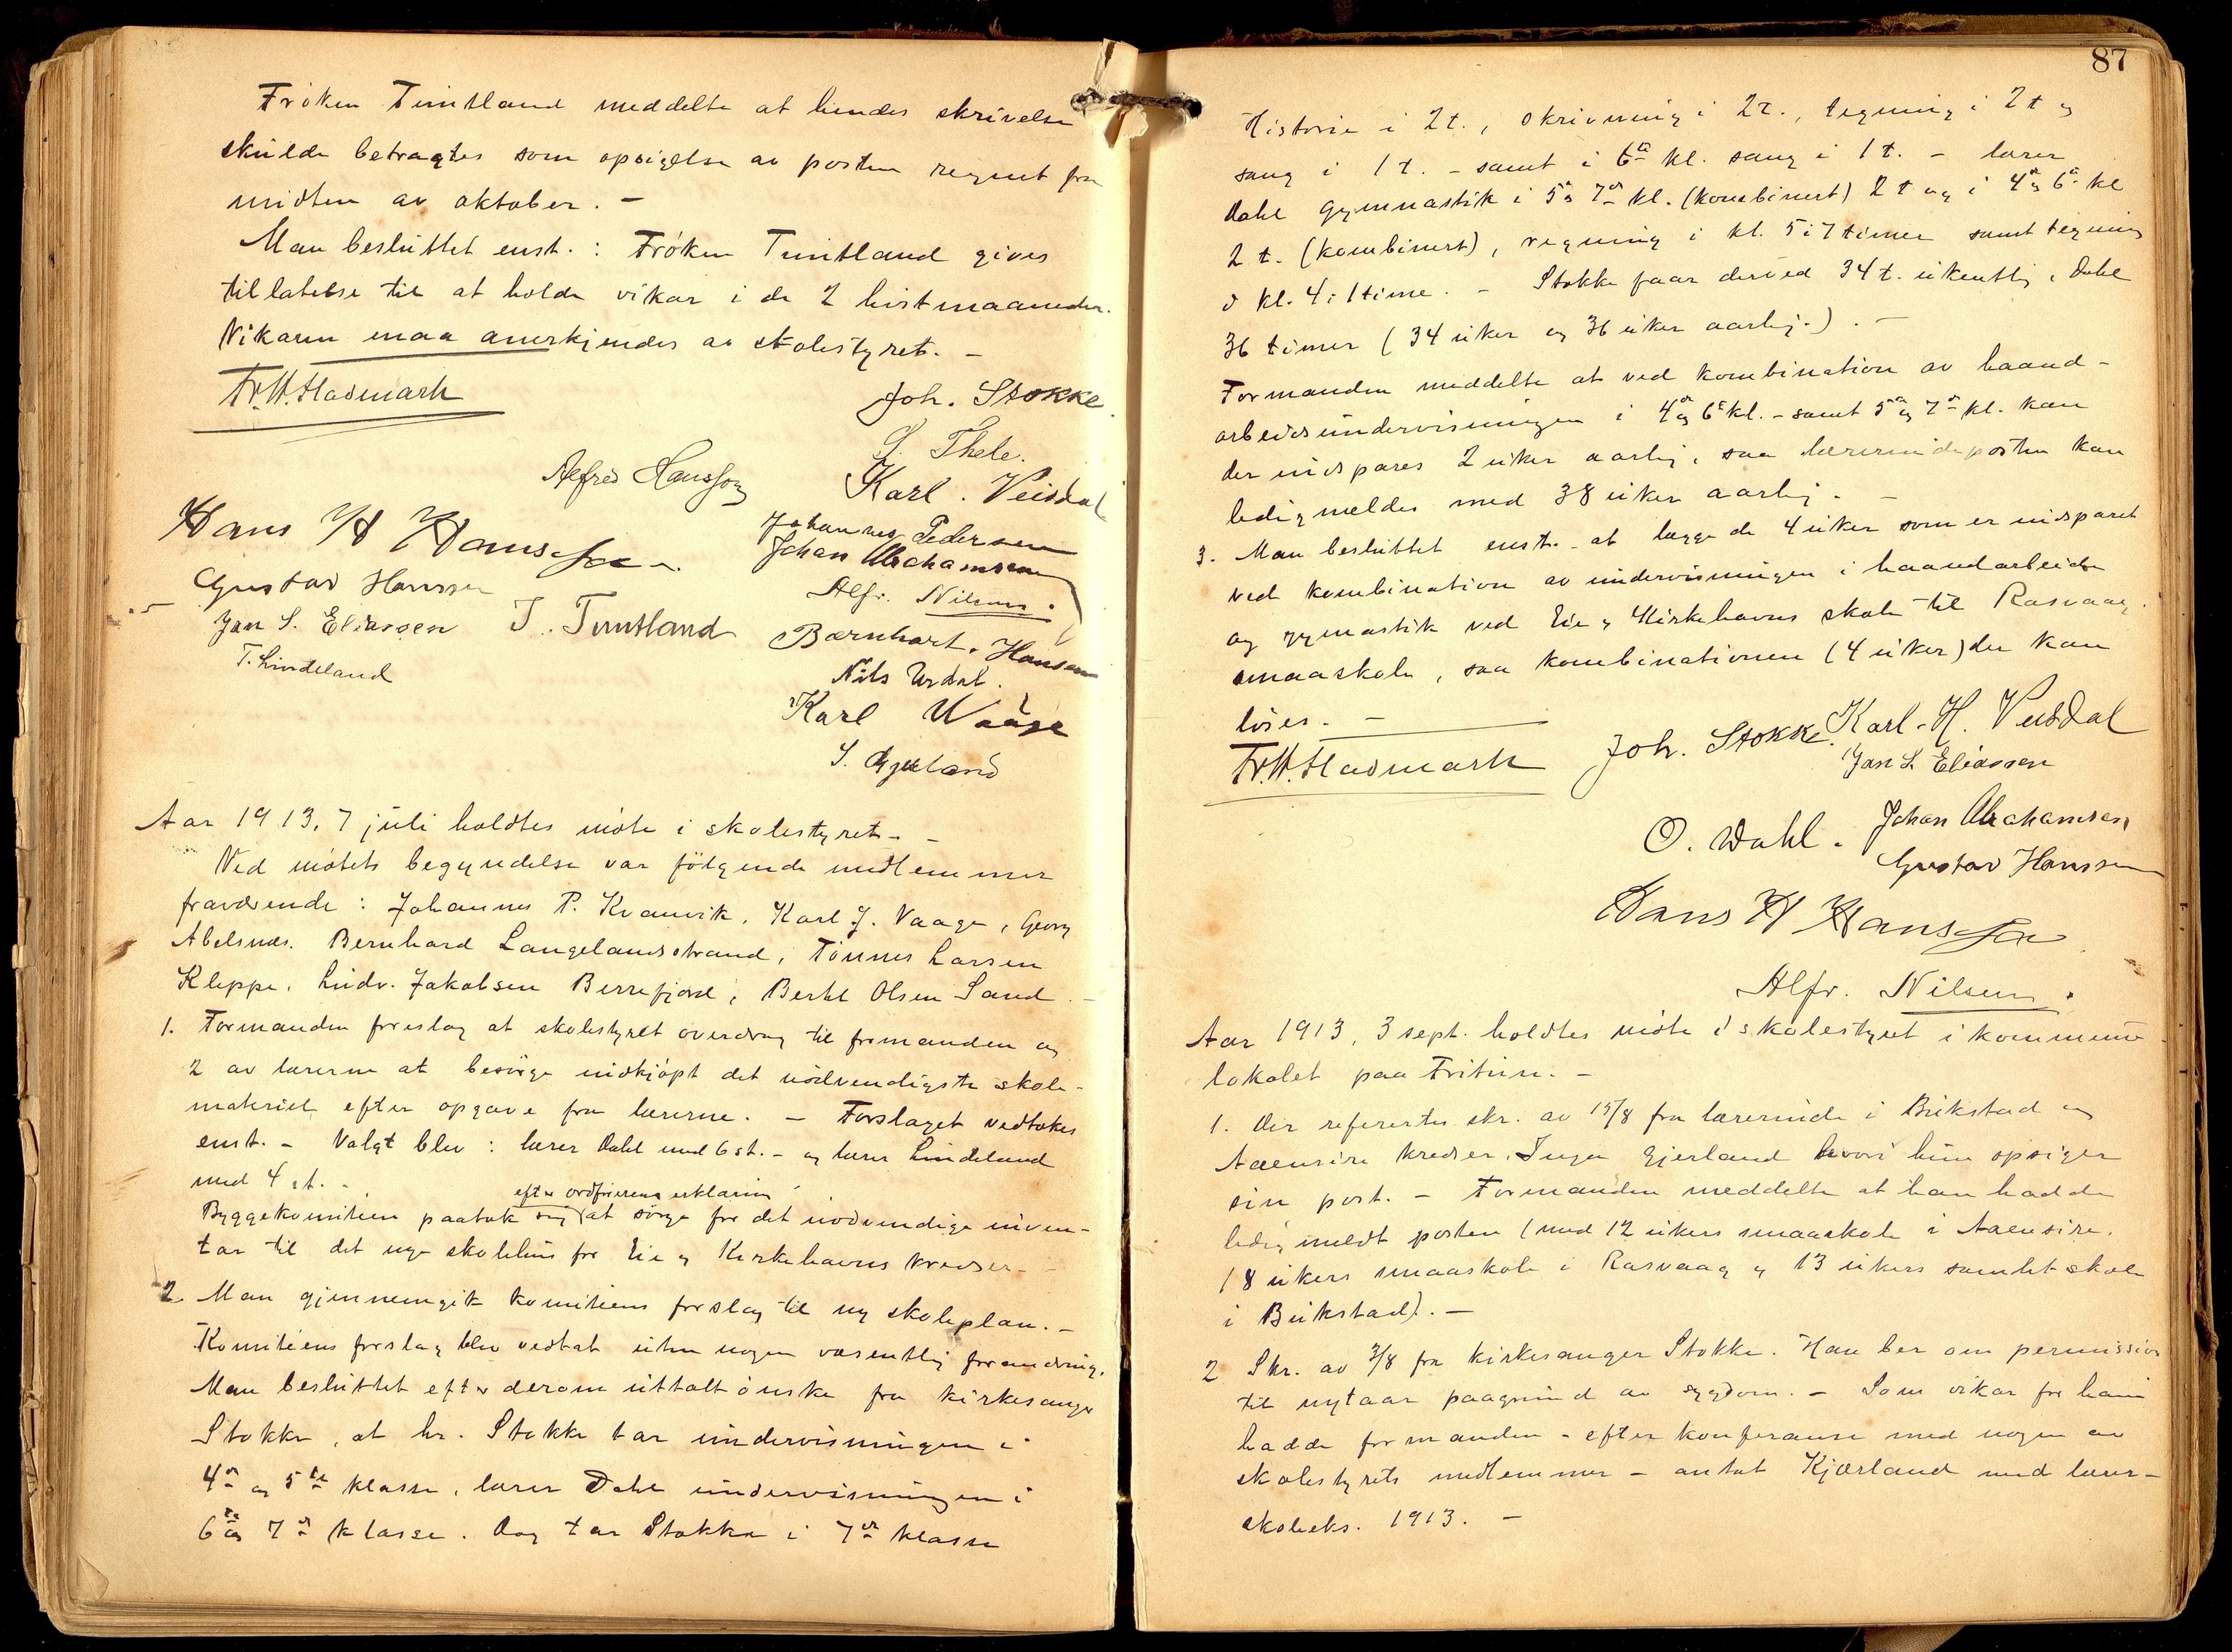 Frøken Tuntland meddelte at hendes skrivelse
skulde betragtes som opsigelse av posten regnet fra
midten av oktober. –
Man besluttet enst.: Frøken Tuntland gives
tillatelse til at holde vikar i de 2 høstmaaneder.
Vikaren maa anerkjendes av skolestyret. –
Fr. W. Hadmark
Joh. Stokke.
S. Thele.
Alfred Hansson
Karl. Veisdal
Hans H Hanssen.
Johannes Pedersen
Johan Abrahamsen
Gustav Hanssen
Alfr. Nilsen.
Jan S. Eliassen
T. Tuntland
Bærnhart. Hansen
T. Lindeland
Nils Urdal.
Karl Waage
S. Gjeland
Aar 1913, 7 juli holdtes møte i skolestyret. –
Ved møtets begyndelse var følgende medlemmer
fraværende: Johannes P. Kvanvik, Karl J. Vaage, Georg
Abelsnes. Bernhard Langelandsstrand, Tønnes Larsen
Kleppe, Ludv. Jakobsen Berrefjord, Bertel Olsen Sand. –
1. Formanden foreslog at skolestyret overdrog til formanden og
2 av lærerne at besørge indkjøpt det nødvendigste skole-
materiel efter opgave fra lærerne. – Forslaget vedtokes
enst. – Valgt blev: lærer Dahl med 6 st. – og lærer Lindeland
med 4 st. –
efter ordførerens erklæring
Byggekomiteen paatok sig at sørge for det nødvendige inven-
tar til det nye skolehus for Eie og Kirkehavns kredser. –
2. Man gjennemgik komiteens forslag til ny skoleplan. –
Komiteens forslag blev vedtat uten nogen væsentlig forandring.
Man besluttet efter derom uttalt ønske fra kirkesanger
Stokke, at hr. Stokke tar undervisningen i
4de og 5te klasse, lærer Dahl undervisningen i
6te og 7de klasse. Dog tar Stokke i 7de klasse
87
Historie i 2t., skrivning i 2t., tegning i 2t og
sang i 1t. – samt i 6te kl. sang i 1t. – lærer
Dahl gymnastik i 5te og 7de kl. (kombinert) 2t og i 4de og 6te kl
2t. (kombinert), regning i kl. 5 i 7 timer samt tegning
i kl. 4 i 1 time. – Stokke faar derved 34t. ukentlig, Dahl
36 timer (34 uker og 36 uker aarlig.). –
Formanden meddelte at ved kombination av haand-
arbeidsundervisningen i 4de og 6te kl. – samt 5te og 7de kl. kan
der indspares 2 uker aarlig, saa lærerindeposten kan
ledigmeldes med 38 uker aarlig. –
3. Man besluttet enst. at lægge de 4 uker som er indsparet
ved kombination av undervisningen i haandarbeide
og gymnastik ved Eie og Kirkehavns skole til Rasvaag
smaaskole, saa kombinationen (4 uker) der kan
løses. –
Fr. W. Hadmark
Joh. Stokke.
Karl. H. Veisdal
Jan S. Eliassen
O. Dahl.
Johan Abrahamsen
Gustav Hanssen
Hans H Hanssen
Alfr. Nilsen.
Aar 1913, 3 sept. holdtes møte i skolestyret i kommune-
lokalet paa Fritun. –
1. Der refereres skr. av 15/8 fra lærerinde i Bukstad og
Aaensire kredser, Inga Gjerland hvori hun opsiger
sin post. – Formanden meddelte at han hadde
ledigmeldt posten (med 12 ukers smaaskole i Aaensire,
18 ukers smaaskole i Rasvaag og 13 ukers samlet skole
i Bukstad). –
2 Skr. av 3/8 fra kirkesanger Stokke. Han ber om permission
til nytaar paagrund av sygdom. – Som vikar for ham
hadde formanden – efter konferanse med nogen av
skolestyrets medlemmer – antat Kjærland med lærer-
skoleeks. 1913. –